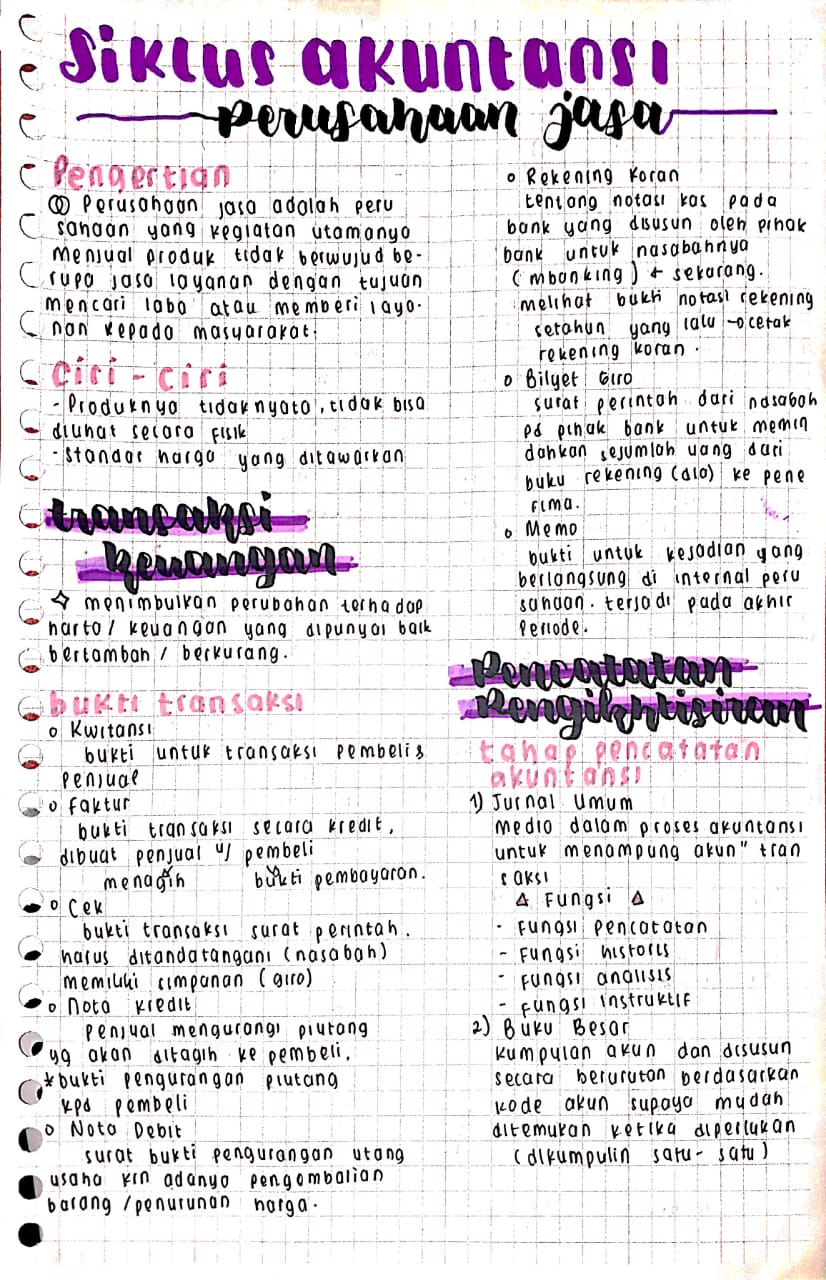 Siklus akuntansi
perusahaan jasa
Pengertian
Perusahaan jasa adalah peru
sahaan yang kegiatan utamanya
menjual produk tidak berwujud be-
rupa jasa layanan dengan tujuan
mencari laba atau memberi laya-
nan kepada masyarakat.
Ciri - Ciri
- Produknya tidak nyata, tidak bisa
dilihat secara fisik
- Standar harga yang ditawarkan
transaksi
keuangan
menimbulkan perubahan terhadap
harta / keuangan yang dipunyai baik
bertambah / berkurang.
bukti transaksi
o Kwitansi
bukti untuk transaksi pembeli &
penjual
o Faktur
bukti transaksi secara kredit,
dibuat penjual u/ pembeli
menagih bukti pembayaran.
o Cek
bukti transaksi surat perintah.
harus ditandatangani (nasabah)
memiliki simpanan (giro)
o Nota Kredit
Penjual mengurangi piutang
yg akan ditagih ke pembeli.
* bukti pengurangan piutang
kpd pembeli
o Nota Debit
surat bukti pengurangan utang
usaha krn adanya pengembalian
barang / penurunan harga.
o Rekening Koran
tentang notasi kas pada
bank yang disusun oleh pihak
bank untuk nasabahnya
(mbanking) + sekarang.
melihat bukti notasi rekening
setahun yang lalu → cetak
rekening koran.
o Bilyet Giro
surat perintah dari nasabah
pd pihak bank untuk memin
dahkan sejumlah uang dari
buku rekening (a/o) ke pene
rima.
o Memo
bukti untuk kejadian yang
berlangsung di internal peru
sahaan. terjadi pada akhir
Periode.
Pencatatan
Pengikhtisiran
tahap pencatatan
akuntansi
1) Jurnal Umum
Media dalam proses akuntansi
untuk menampung akun" tran
saksi
△ Fungsi △
- Fungsi pencatatan
- Fungsi historis
- Fungsi analisis
- Fungsi instruktif
2) Buku Besar
Kumpulan akun dan disusun
secara berurutan berdasarkan
kode akun supaya mudah
ditemukan ketika diperlukan
(dikumpulin satu-satu)